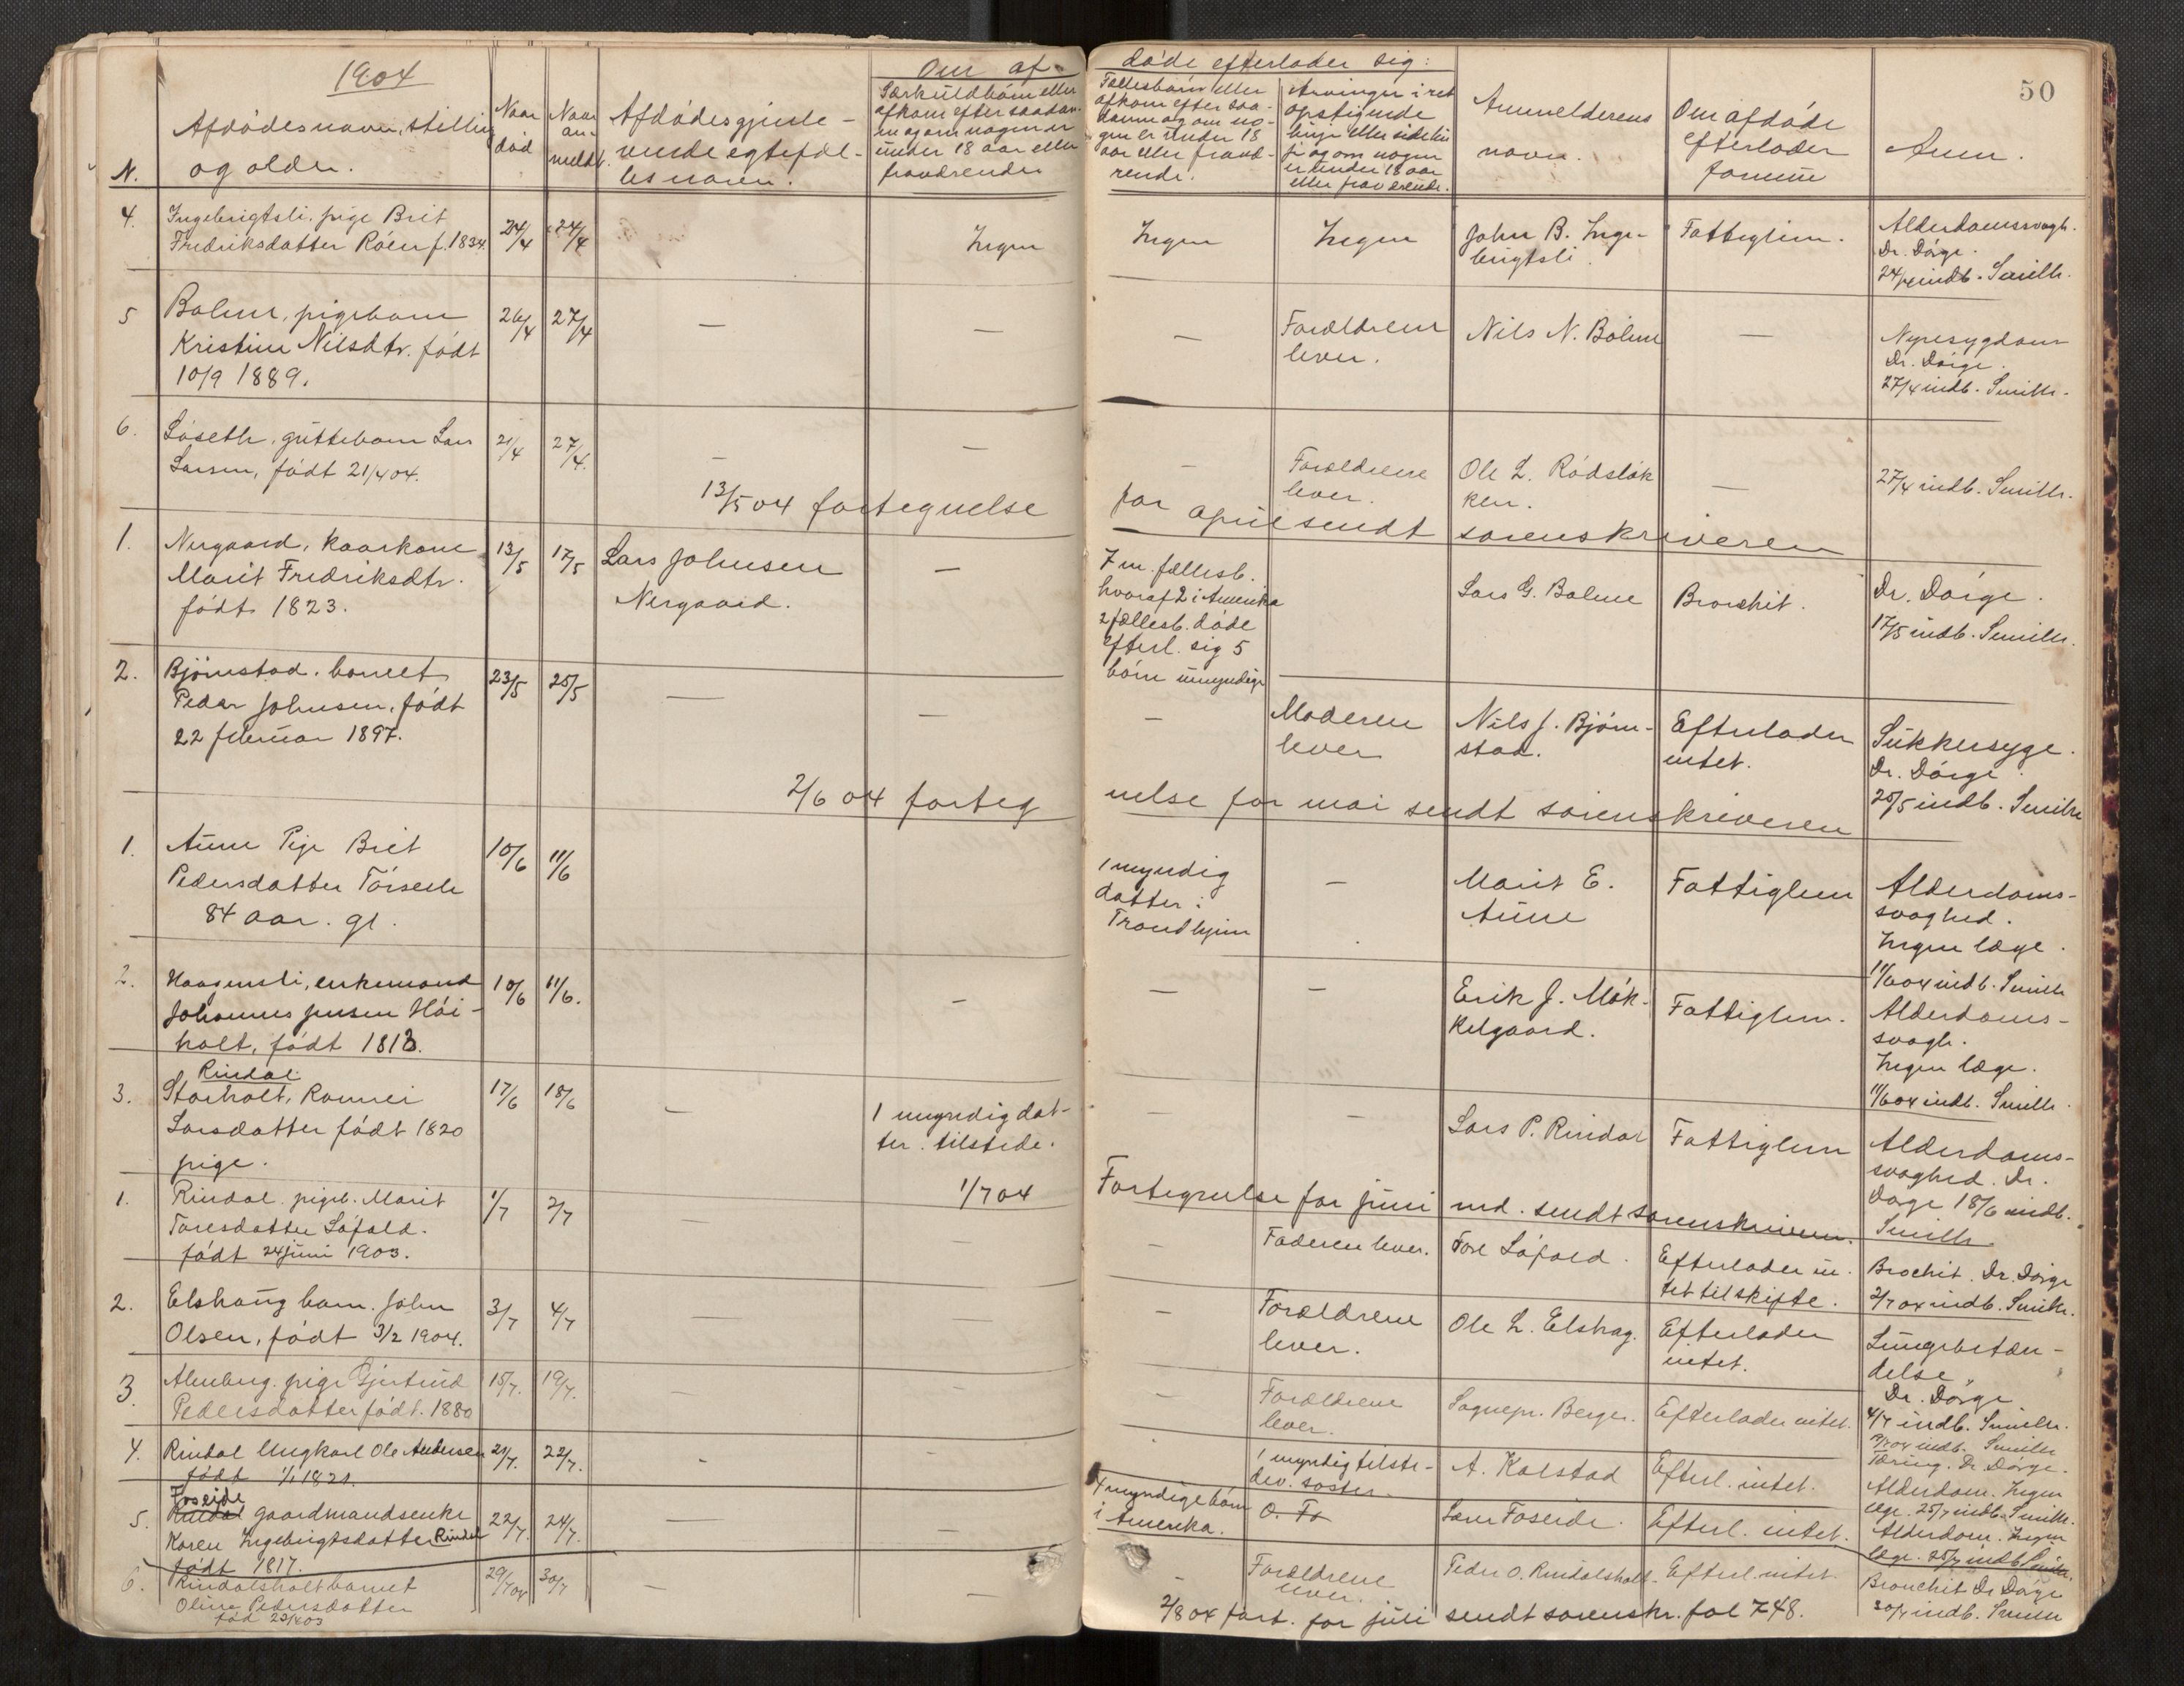 1904
50
N.
Afdødes navn, stilling
og alder.
Naar
død
Naar
an-
meldt.
Afdødes gjenle-
vende egtefæl-
les navn.
Om af-
Særkuldbørn eller
afkom efter saadan-
ne og om nogen er
under 18 aar eller
fraværende
døde efterlader sig:
Fællesbørn eller
afkom efter saa-
danne og om no-
gen er under 18
aar eller fravæ-
rende.
Arvinger i ret
opstigende
linje eller sidelin
je og om nogen
er under 18 aar
eller fraværende.
Anmelderens
navn.
Om afdøde
efterlader
formue
Anm.
4. Ingebrigtsli, pige Brit
Fredriksdatter Röen f. 1834.
24/4 24/4
Ingen
Ingen
Ingen
John B. Inge-
brigtsli.
Fattiglem.
Alderdomssvagh.
Dr. Dørge.
24/4 indb. Smith.
5 Bolme, pigebarn
Kristine Nilsdtr. født
10/9 1889.
26/4 27/4
—
—
—
Forældrene
lever.
Nils N. Bolme
—
Nyresygdom
Dr. Dørge.
27/4 indb. Smith.
6. Løseth, guttebarn Lars
Larsen, født 21/4 04.
21/4 27/4.
—
—
—
Forældrene
lever.
Ole L. Rødsløk
ken.
—
27/4 indb. Smith.
13/5 04 fortegnelse for april sendt sorenskriveren
1. Nergaard, kaarkone
Marit Fredriksdtr.
født 1823.
13/5 17/5
Lars Johnsen
Nergaard.
—
7 m. fællesb.
hvoraf 2 i Amerika
2 fællesb. døde
efterl. sig 5
børn umyndige
Lars G. Bolme
Bronchit.
Dr. Dørge.
17/5 indb. Smith.
2. Bjørnstad, barnet
Peder Johnsen, født
22 februar 1897.
23/5 25/5
—
—
—
Moderen
lever
Nils J. Bjørn-
stad.
Efterlader
intet.
Sukkersyge.
Dr. Dørge.
25/5 indb. Smith
2/6 04 forteg nelse for mai sendt sorenskriveren
1. Aune Pige Brit
Pedersdatter Törseth
84 aar. gl.
10/6 11/6
1 myndig
datter i
Trondhjem
—
Marit E.
Aune
Fattiglem
Alderdoms-
svaghed.
Ingen læge.
11/6 04 indb. Smith
2. Haagensli, enkemand
Johannes Jensen Høi-
holt, født 1813.
10/6 11/6.
—
—
—
Erik J. Møk-
kelgaard.
Fattiglem.
Alderdoms-
svagh.
Ingen læge.
11/6 04 indb. Smith.
3. Rindal
Storholt, Ronnei
Larsdatter født 1820
pige.
17/6 18/6
—
1 myndig dat-
ter. tilstede.
—
—
Lars P. Rindal
Fattiglem
Alderdoms-
svaghed. Dr.
Dørge 18/6 indb.
Smith
1/7 04 Fortegnelse for juni md. sendt sorenskriveren.
1. Rindal pigeb. Marit
Toresdatter Løfald.
født 24 juni 1903.
1/7 2/7
—
—
—
Faderen lever.
Tore Løfald.
Efterlader in-
tet til skifte.
Brochit. Dr. Dørge
2/7 04 indb. Smith.
2. Elshaug barn. John
Olsen, født 3/2 1904.
3/7 4/7
—
—
—
Forældrene
lever.
Ole L. Elshaug.
Efterlader
intet.
Lungebetæn-
delse.
Dr. Dørge
4/7 indb. Smith.
3 Almberg. pige Gjertrud
Pedersdatter født. 1880
15/7. 19/7.
—
—
—
Forældrene
lever.
Sognepr. Berger.
Efterlader intet.
indb. Smith
Tæring. Dr. Dørge.
4. Rindal Ungkarl Ole Andersen
født 1/1 1821.
21/7. 22/7.
-
-
1 myndig tilste-
dev. søster.
A. Kalstad
Efterl. intet.
Alderdom. Ingen
læge. 25/7 indb. Smith.
5. Foseide
Rindal gaardmandsenke
Karen Ingebrigtsdatter Rindal
født 1817.
22/7. 24/7.
—
—
4 myndige børn
i Amerika.
O. Fo
Lars Foseide.
Efterl. intet.
Alderdom. Ingen
læge. 25/7 indb Smith.
6. Rindalsholt barnet
Oline Pedersdatter
fød 23/4 03
29/7 04 30/7
—
—
—
Forældrene
lever.
Peder O. Rindalsholt.
Efterl. intet.
Bronchit Dr Dørge
30/7 indb. Smith
2/8 04 fort. for juli sendt sorenskr. fol 748.